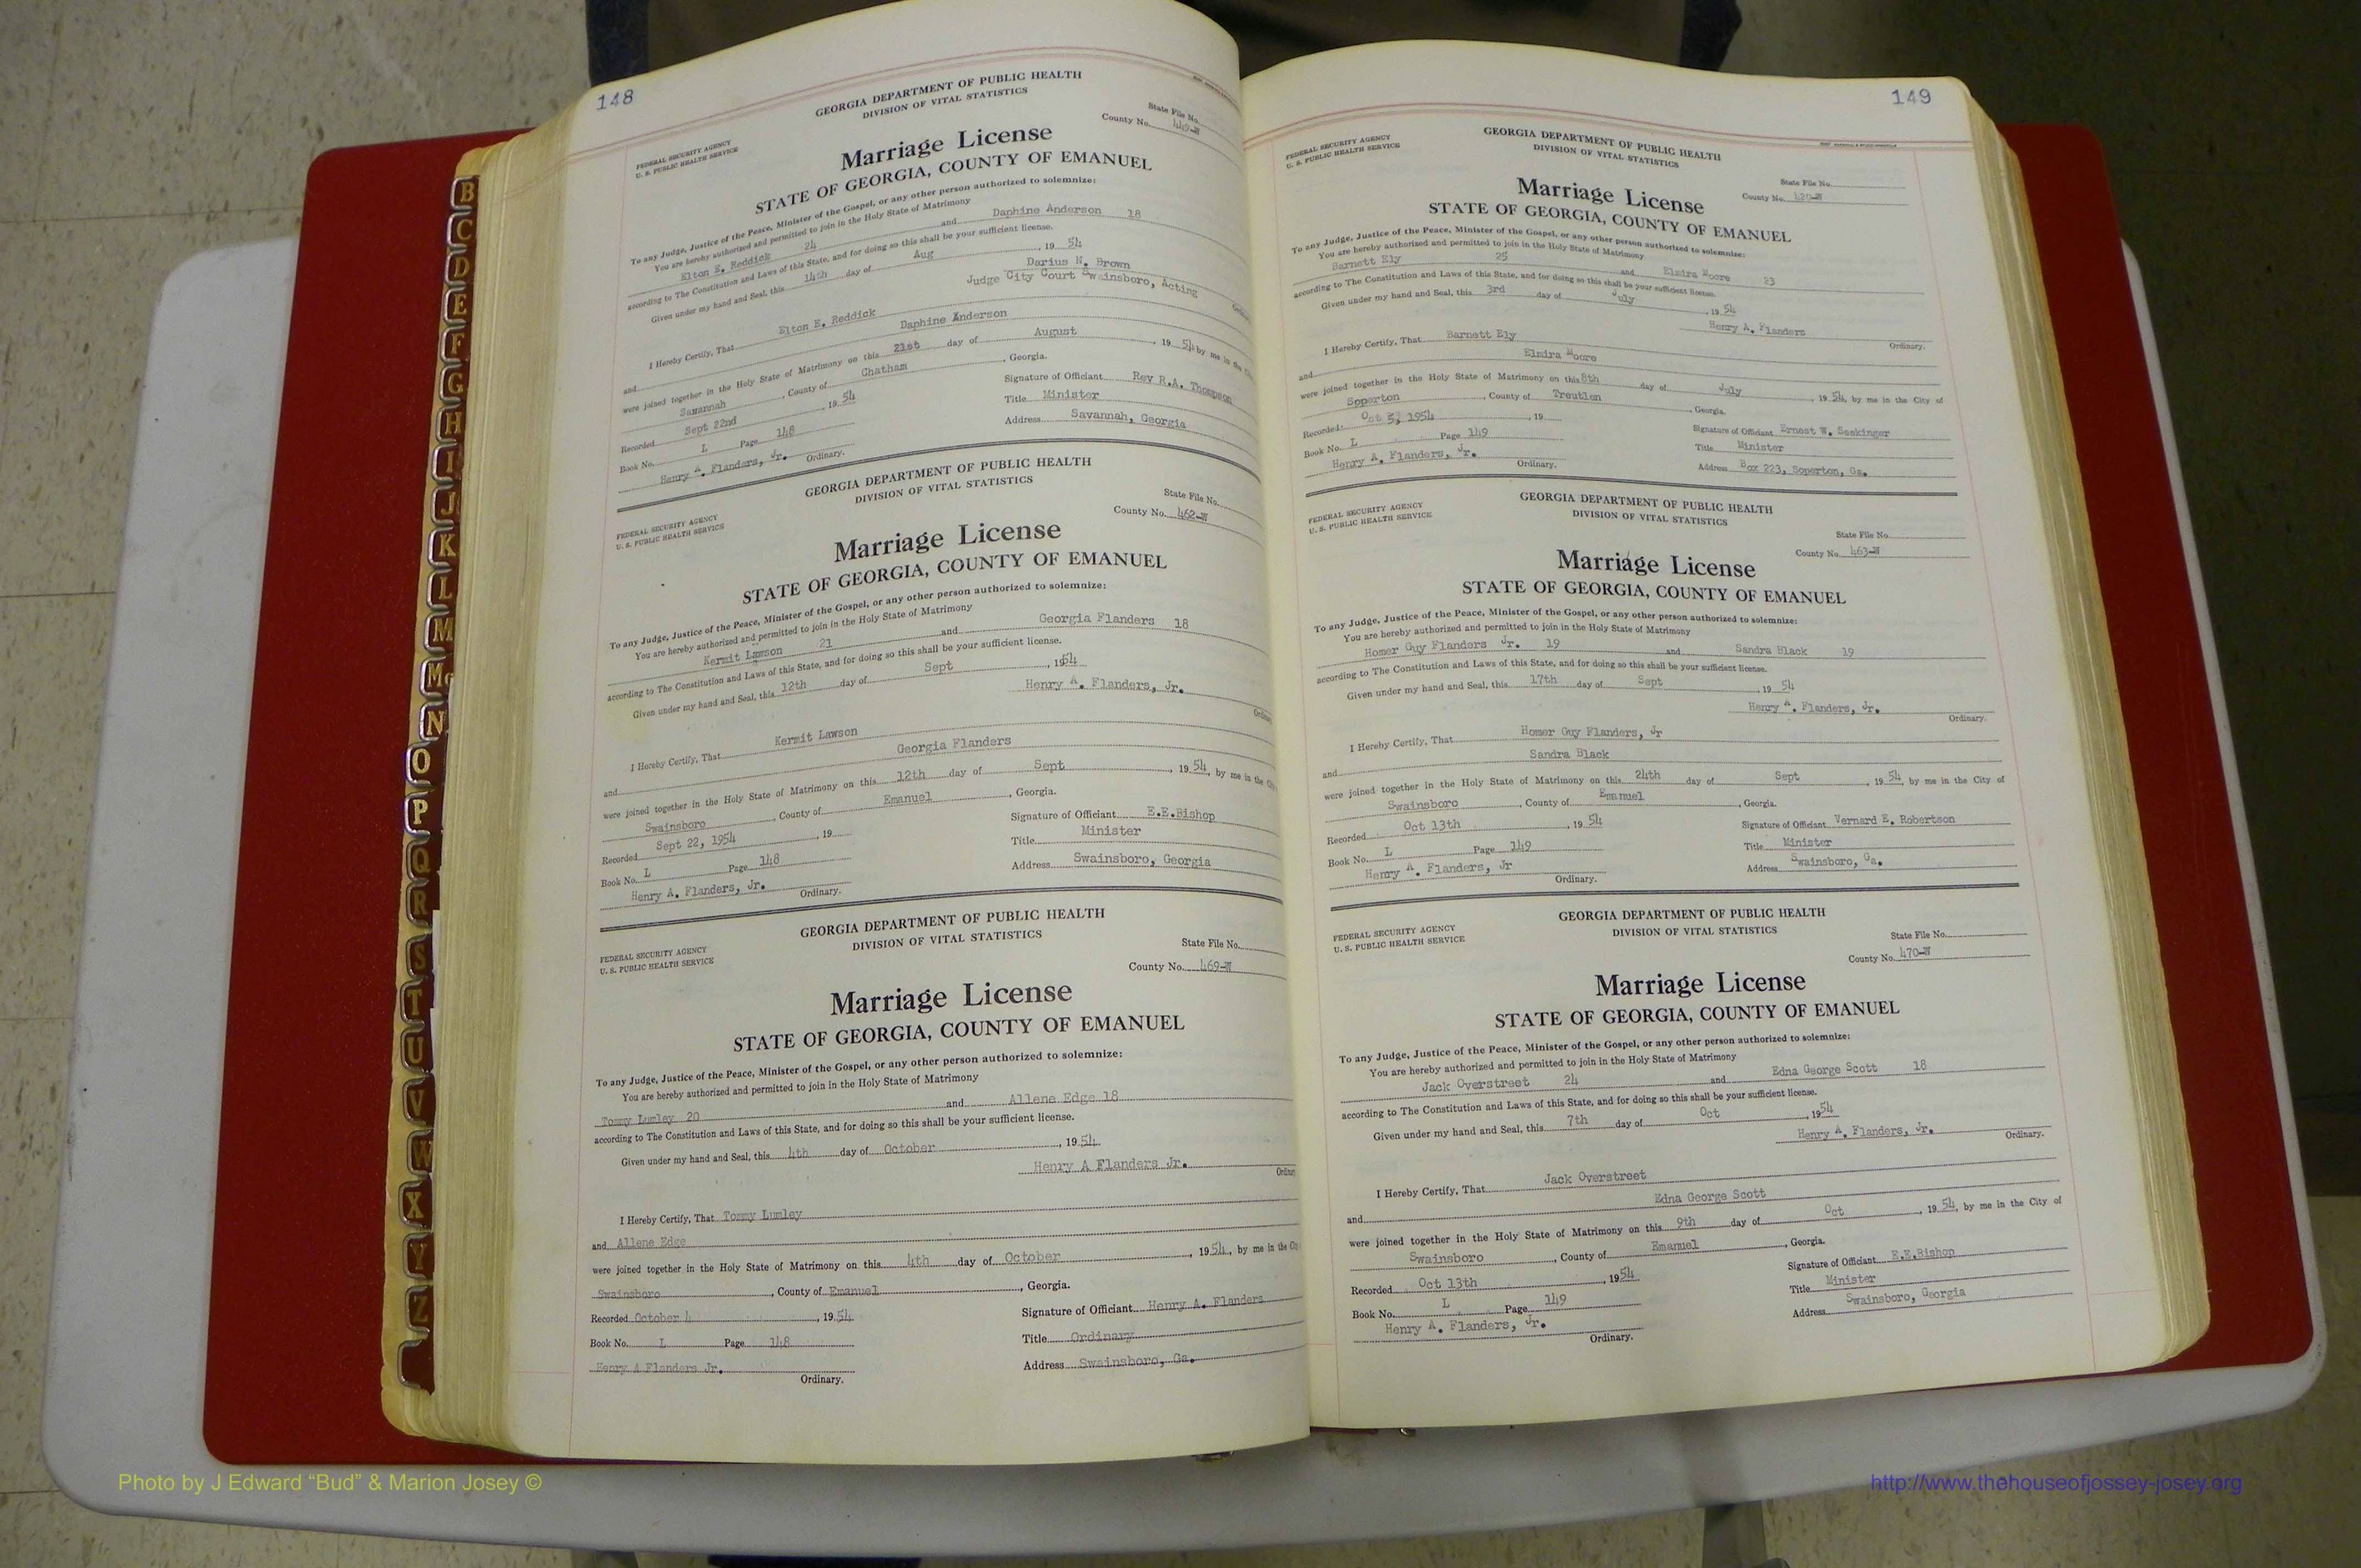 148
GEORGIA DEPARTMENT OF PUBLIC HEALTH
DIVISION OF VITAL STATISTICS
FEDERAL SECURITY AGENCY
U. S. PUBLIC HEALTH SERVICE
State File No.
County No.
Marriage License
STATE OF GEORGIA, COUNTY OF EMANUEL
To any Judge, Justice of the Peace, Minister of the Gospel, or any other person authorized to solemnize:
You are hereby authorized and permitted to join in the Holy State of Matrimony
Elton E. Reddick 24 and Daphine Anderson 18
according to The Constitution and Laws of this State, and for doing so this shall be your sufficient license.
Given under my hand and Seal, this 14th day of Aug, 19 54
Darius N. Brown
Judge City Court Swainsboro, Acting
I Hereby Certify, That Elton E. Reddick
and Daphine Anderson
were joined together in the Holy State of Matrimony on this 21st day of August, 19 54 by me in the
Savannah, County of Chatham, Georgia.
Recorded Sept 22nd, 19 54
Signature of Officiant Rev R.A. Thompson
Book No. L Page 148
Title Minister
Henry A. Flanders, Jr. Ordinary.
Address Savannah, Georgia
GEORGIA DEPARTMENT OF PUBLIC HEALTH
DIVISION OF VITAL STATISTICS
FEDERAL SECURITY AGENCY
U. S. PUBLIC HEALTH SERVICE
State File No.
County No. 462-W
Marriage License
STATE OF GEORGIA, COUNTY OF EMANUEL
To any Judge, Justice of the Peace, Minister of the Gospel, or any other person authorized to solemnize:
You are hereby authorized and permitted to join in the Holy State of Matrimony
Kermit Lawson 21 and Georgia Flanders 18
according to The Constitution and Laws of this State, and for doing so this shall be your sufficient license.
Given under my hand and Seal, this 12th day of Sept, 1954
Henry A. Flanders, Jr.
I Hereby Certify, That Kermit Lawson
and Georgia Flanders
were joined together in the Holy State of Matrimony on this 12th day of Sept, 19 54, by me in the
Swainsboro, County of Emanuel, Georgia.
Recorded Sept 22, 1954, 19
Signature of Officiant E.E.Bishop
Book No. L Page 148
Title Minister
Henry A. Flanders, Jr. Ordinary.
Address Swainsboro, Georgia
GEORGIA DEPARTMENT OF PUBLIC HEALTH
DIVISION OF VITAL STATISTICS
FEDERAL SECURITY AGENCY
U. S. PUBLIC HEALTH SERVICE
State File No.
County No. 469-W
Marriage License
STATE OF GEORGIA, COUNTY OF EMANUEL
To any Judge, Justice of the Peace, Minister of the Gospel, or any other person authorized to solemnize:
You are hereby authorized and permitted to join in the Holy State of Matrimony
Tommy Lumley 20 and Allene Edge 18
according to The Constitution and Laws of this State, and for doing so this shall be your sufficient license.
Given under my hand and Seal, this 4th day of October, 19 54
Henry A Flanders Jr.
I Hereby Certify, That Tommy Lumley
and Allene Edge
were joined together in the Holy State of Matrimony on this 4th day of October, 19 54, by me in the
Swainsboro, County of Emanuel, Georgia.
Recorded October 4, 19 54
Signature of Officiant Henry A. Flanders
Book No. L Page 148
Title Ordinary
Henry A Flanders Jr.
Ordinary.
Address Swainsboro, Ga.
149
GEORGIA DEPARTMENT OF PUBLIC HEALTH
DIVISION OF VITAL STATISTICS
FEDERAL SECURITY AGENCY
U. S. PUBLIC HEALTH SERVICE
State File No.
County No. 420-W
Marriage License
STATE OF GEORGIA, COUNTY OF EMANUEL
To any Judge, Justice of the Peace, Minister of the Gospel, or any other person authorized to solemnize:
You are hereby authorized and permitted to join in the Holy State of Matrimony
Barnett Ely 25 and Elmira Moore 23
according to The Constitution and Laws of this State, and for doing so this shall be your sufficient license.
Given under my hand and Seal, this 3rd day of July, 19 54
Henry A. Flanders
Ordinary.
I Hereby Certify, That Barnett Ely
and Elmira Moore
were joined together in the Holy State of Matrimony on this 8th day of July, 19 54, by me in the City of
Soperton, County of Treutlen, Georgia.
Recorded: Oct 5, 1954, 19
Signature of Officiant Ernest W. Seckinger
Book No. L Page 149
Title Minister
Henry A. Flanders, Jr. Ordinary.
Address Box 223, Soperton, Ga.
GEORGIA DEPARTMENT OF PUBLIC HEALTH
DIVISION OF VITAL STATISTICS
FEDERAL SECURITY AGENCY
U. S. PUBLIC HEALTH SERVICE
State File No.
County No. 463-W
Marriage License
STATE OF GEORGIA, COUNTY OF EMANUEL
To any Judge, Justice of the Peace, Minister of the Gospel, or any other person authorized to solemnize:
You are hereby authorized and permitted to join in the Holy State of Matrimony
Homer Guy Flanders Jr. 19 and Sandra Black 19
according to The Constitution and Laws of this State, and for doing so this shall be your sufficient license.
Given under my hand and Seal, this 17th day of Sept, 19 54
Henry A. Flanders, Jr.
Ordinary.
I Hereby Certify, That Homer Guy Flanders, Jr
and Sandra Black
were joined together in the Holy State of Matrimony on this 24th day of Sept, 19 54, by me in the City of
Swainsboro, County of Emanuel, Georgia.
Recorded Oct 13th, 19 54
Signature of Officiant Vernard E. Robertson
Book No. L Page 149
Title Minister
Henry A. Flanders, Jr Ordinary.
Address Swainsboro, Ga.
GEORGIA DEPARTMENT OF PUBLIC HEALTH
DIVISION OF VITAL STATISTICS
FEDERAL SECURITY AGENCY
U. S. PUBLIC HEALTH SERVICE
State File No.
County No. 470-W
Marriage License
STATE OF GEORGIA, COUNTY OF EMANUEL
To any Judge, Justice of the Peace, Minister of the Gospel, or any other person authorized to solemnize:
You are hereby authorized and permitted to join in the Holy State of Matrimony
Jack Overstreet 24 and Edna George Scott 18
according to The Constitution and Laws of this State, and for doing so this shall be your sufficient license.
Given under my hand and Seal, this 7th day of Oct, 19 54
Henry A. Flanders, Jr. Ordinary.
I Hereby Certify, That Jack Overstreet
and Edna George Scott
were joined together in the Holy State of Matrimony on this 9th day of Oct, 19 54, by me in the City of
Swainsboro, County of Emanuel, Georgia.
Recorded Oct 13th, 19 54
Signature of Officiant E.E.Bishop
Book No. L Page 149
Title Minister
Henry A. Flanders, Jr.
Ordinary.
Address Swainsboro, Georgia
B
C
D
E
F
G
H
I
J
K
L
M
Mc
N
O
P
Q
R
S
T
U
V
W
X
Y
Z
Photo by J Edward “Bud” & Marion Josey ©
http://www.thehouseofjossey-josey.org